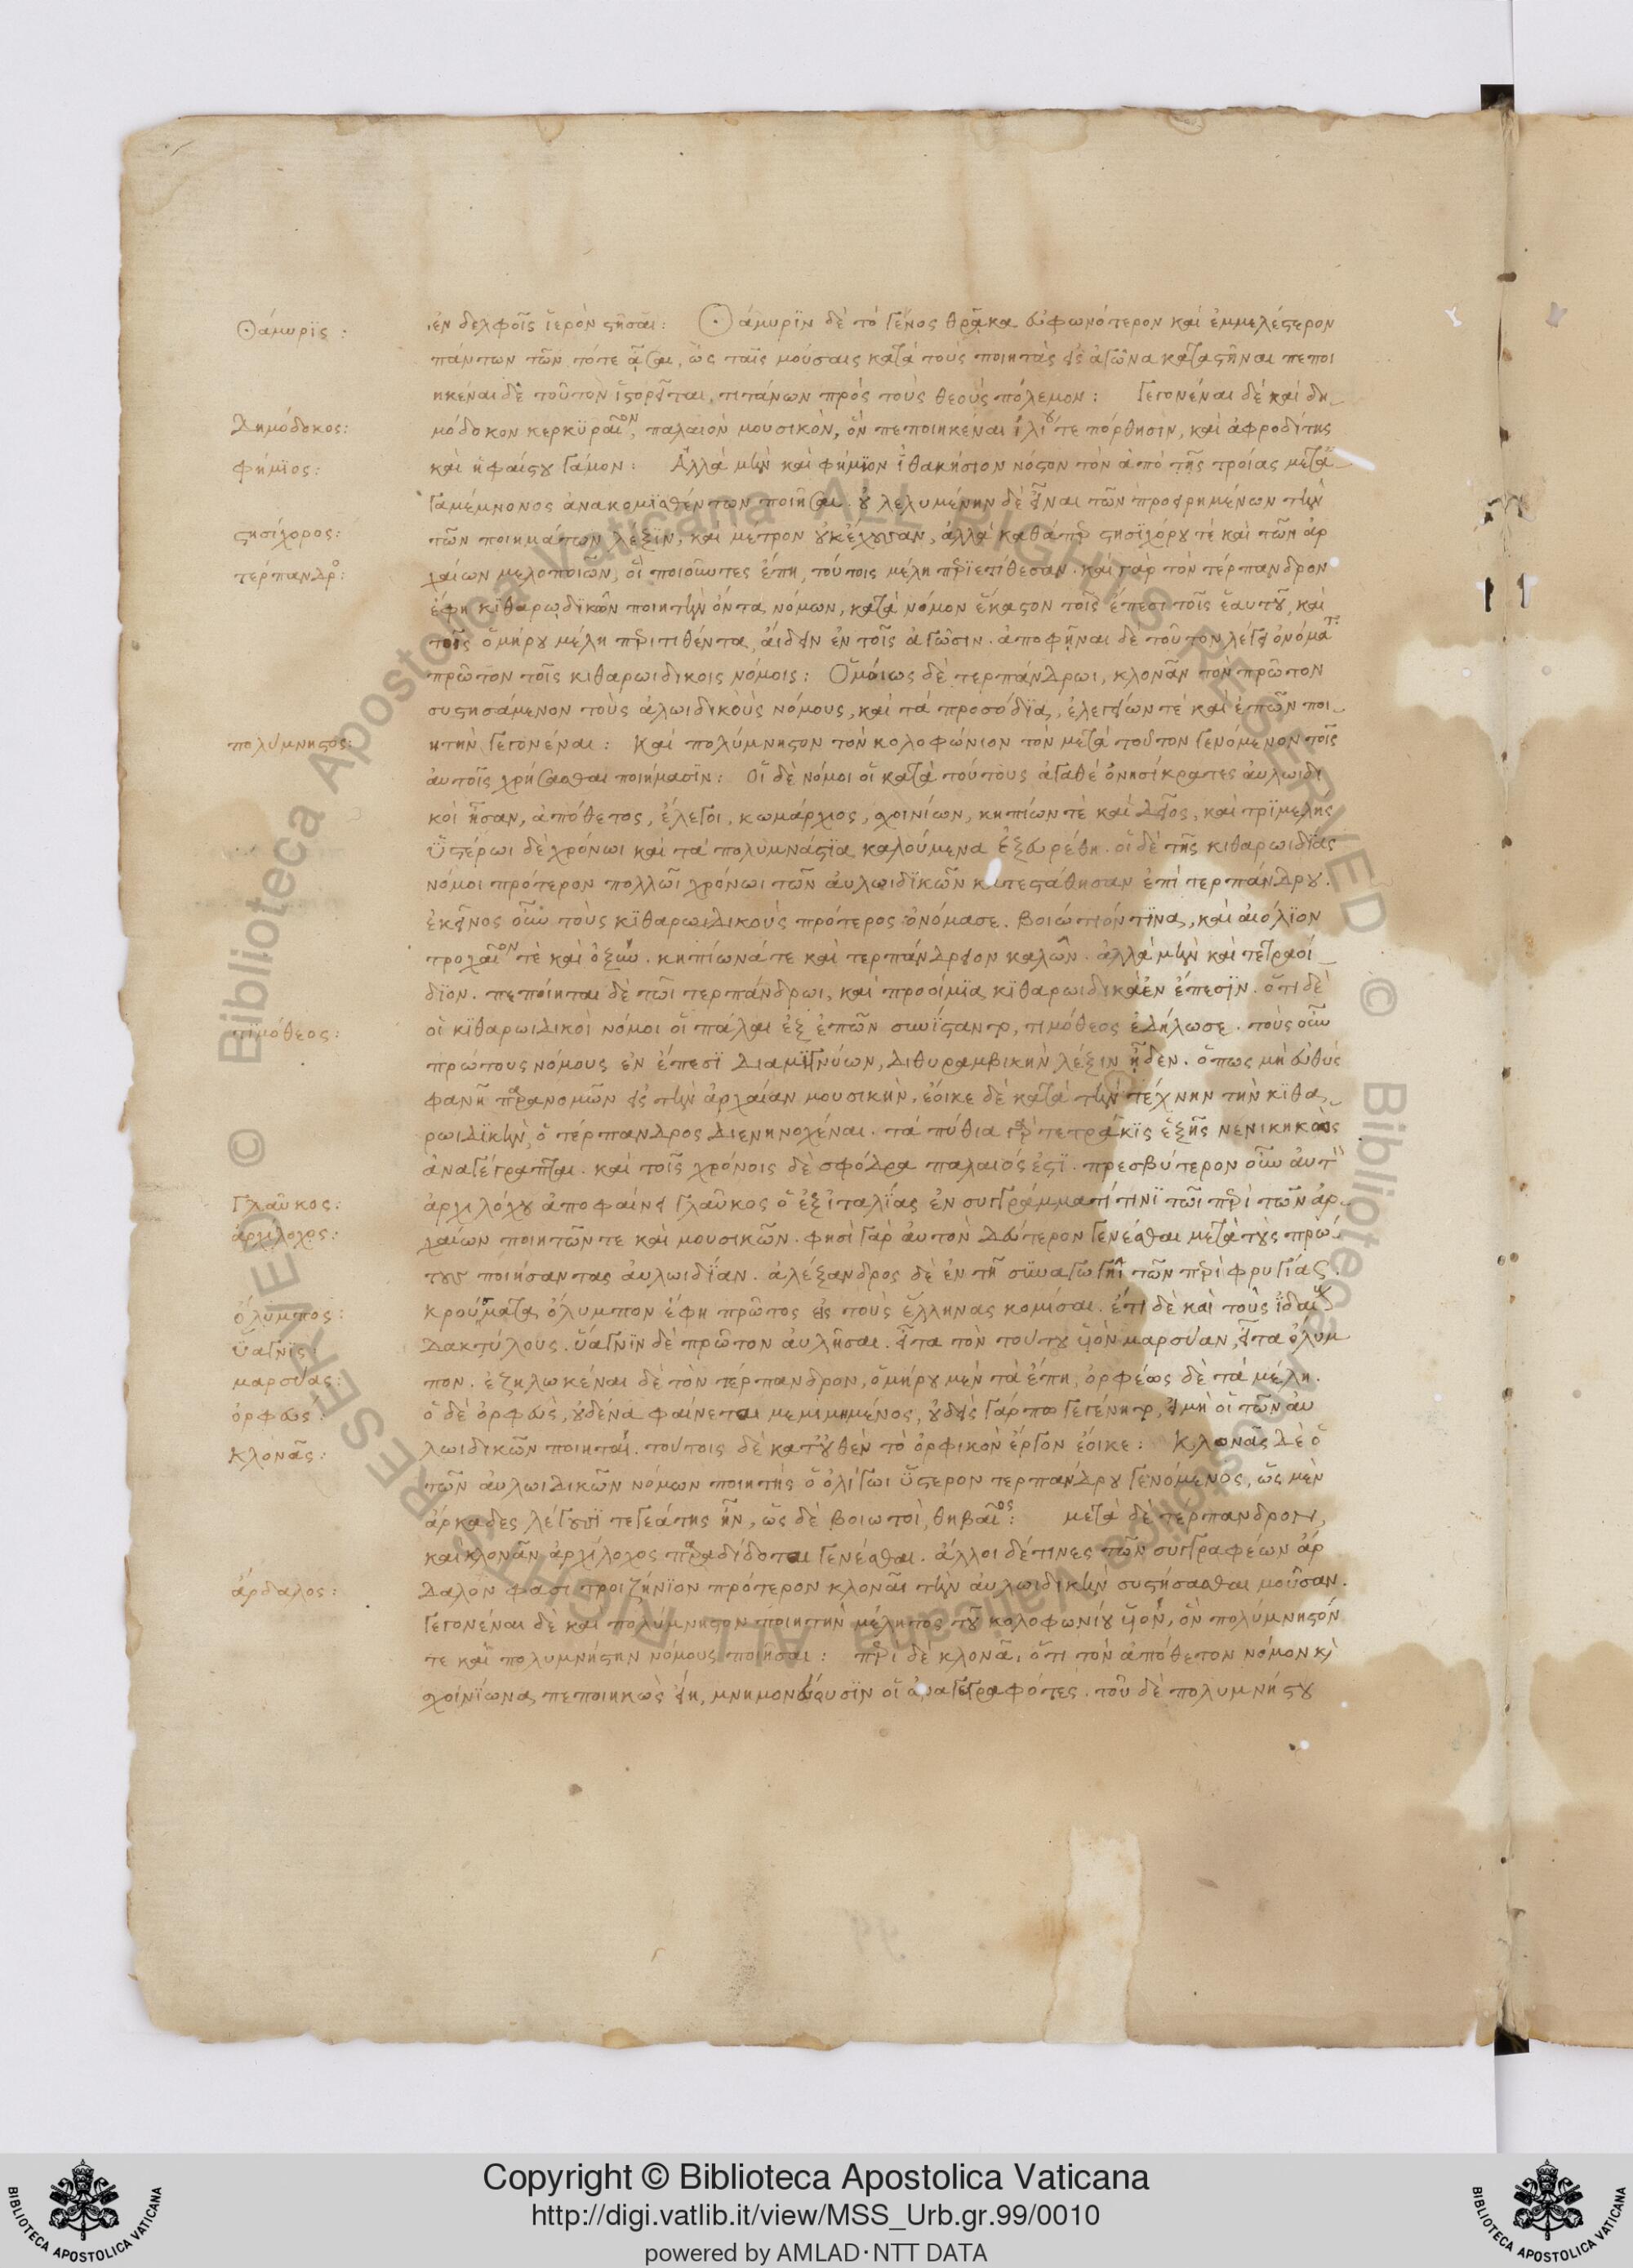 Θάμυρϊς :
ἐν δελφοῖς ἱερὸν στῆσαι : Θάμυριν δὲ τὸ γένος θρᾷκα εὐφωνότερον καὶ ἐμμελέστερον
πάντων τῶν τότε ᾆσαι, ὡς ταῖς μούσαις κατὰ τοὺς ποιητὰς εἰς ἀγῶνα καταστῆναι πεποι
ηκέναι δὲ τοῦτον ἱστορεῖται, τιτάνων πρὸς τοὺς θεοὺς πόλεμον : Γεγονέναι δὲ καὶ δη
Δημόδοκος:
μόδοκον κερκυραῖον, παλαιὸν μουσικὸν, ὃν πεποιηκέναι ἰλίου τε πόρθησιν, καὶ ἀφροδίτης
φήμϊος :
καὶ ἡφαίστου γάμον : Ἀλλὰ μὴν καὶ φήμϊον ἰθακήσιον νόστον τὸν ἀπὸ τῆς τροίας μετὰ
γαμέμνονος ἀνακομισθέντων ποιῆσαι. οὐ λελυμένην δὲ εἶναι τῶν προειρημένων τὴν
στησίχορος:
τῶν ποιημάτων λέξϊν, καὶ μετρον οὐκ έχουσαν, ἀλλὰ καθάπερ στησιχόρου τὲ καὶ τῶν ἀρ
τέρπανδρο:
χαίων μελοποιῶν, οἳ ποιοῦντες ἔπη, τούτοις μέλη περιετίθεσαν. καὶ γὰρ τὸν τέρπανδρον
ἔφη κιθαρῳδϊκῶν ποιητὴν ὄντα νόμων, κατὰ νόμον ἕκαστον τοῖς ἔπεσι τοῖς ἑαυτοῦ, καὶ
τοῖς ὁμήρου μέλη περιτιθέντα, ἀίδειν ἐν τοῖς ἀγῶσιν. ἀποφῆναι δὲ τοῦτον λέγει ὀνόματα
πρῶτον τοῖς κιθαρωιδικοις νόμοις : Ὁμοίως δὲ τερπάνδρωι, κλονᾶν τὸν πρῶτον
συστησάμενον τοὺς ἀλωιδικοὺς νόμους, καὶ τὰ προσόδϊα, ἐλεγείων τὲ καὶ ἐπῶν ποι
πολύμνηστος:
ητὴν γεγονέναι : Καὶ πολύμνηστον τὸν κολοφώνιον τὸν μετὰ τοῦτον γενόμενον τοῖς
ἀυτοῖς χρήσασθαι ποιήμασϊν : Οἱ δὲ νόμοι οἱ κατὰ τούτους ἀγαθὲ ὀνησίκρατες ἀυλωιδι
κοὶ ἦσαν, ἀπόθετος, ἔλεγοι, κωμάρχιος, σχοινίων, κηπίων τὲ καὶ δεῖος, καὶ τρϊμελης
Ὑστέρωι δὲ χρόνωι καὶ τὰ πολυμνάστϊα καλούμενα ἐξευρέθη. οἱ δὲ τῆς κιθαρωιδίας
νόμοι πρότερον πολλῶι χρόνωι τῶν ἀυλωιδϊκῶν κατεστάθησαν ἐπὶ τερπάνδρου.
ἐκεῖνος οὖν τοὺς κϊθαρωιδικοὺς πρότερος ὀνόμασε. βοιώτιόν τϊνα, καὶ αἰόλϊον
τροχαῖον τὲ καὶ ὀξὺν. κηπίωνά τε καὶ τερπάνδρειον καλῶν. ἀλλὰ μὴν καὶ τετραοί
δϊον. πεποίηται δὲ τῶι τερπάνδρωι, καὶ προοίμϊα κϊθαρωιδικὰ ἐν ἔπεσϊν. ὅτι δὲ
τϊμόθεος :
οἱ κϊθαρωιδικοὶ νόμοι οἱ πάλαι ἐξ ἐπῶν συνίσταντο, τιμόθεος ἐδήλωσε. τοὺς οὖν
πρώτους νόμους ἐν ἔπεσϊ διαμϊγνύων, διθυραμβικὴν λέξιν ᾖδεν. ὅπως μὴ εὐθὺς
φανῇ παρανομῶν εἰς τὴν ἀρχαίαν μουσικὴν. ἔοικε δὲ κατὰ τὴν τέχνην τὴν κϊθα
ρωιδϊκὴν, ὁ τέρπανδρος διενηνοχέναι. τὰ πύθια γὰρ τετράκϊς ἑξῆς νενικηκὼς
ἀναγέγραπται. καὶ τοῖς χρόνοις δὲ σφόδρα παλαιός ἐστϊ. πρεσβύτερον οὖν ἀυτὸν
Γλαῦκος :
ἀρχιλόχου ἀποφαίνει γλαῦκος ὁ ἐξ ἰταλίας ἐν συγγράμματί τινϊ τῶι περὶ τῶν ἀρ
ἀρχίλοχος :
χαίων ποιητῶν τε καὶ μουσικῶν. φησὶ γὰρ ἀυτὸν δεύτερον γενέσθαι μετὰ τοὺς πρώ
τους ποιήσαντας ἀυλωιδΐαν. ἀλέξανδρος δὲ ἐν τῇ συναγωγῆι τῶν περὶ φρυγίας
ὄλυμπος :
κρούματα ὄλυμπον ἔφη πρῶτος εἰς τοὺς ἕλληνας κομίσαι. ἔτι δὲ καὶ τοὺς ἰδαίους
ὕαγνις :
δακτύλους. ὕαγνϊν δὲ πρῶτον ἀυλῆσαι. εἶτα τὸν τούτου υἱὸν μαρσύαν, εἶτα ὄλυμ
μαρσύας:
πον. ἐζηλωκέναι δὲ τὸν τέρπανδρον, ὁμήρου μὲν τὰ ἔπη, ὀρφέως δὲ τὰ μέλη.
ὀρφεύς :
ὁ δὲ ὀρφεὺς, οὐδένα φαίνεται μεμιμημένος, οὐδεὶς γάρ πω γεγένητο, εἰ μὴ οἱ τῶν ἀυ
Κλονᾶς :
λωιδικῶν ποιηταὶ. τούτοις δὲ κατ' οὐθὲν τὸ ὀρφικὸν ἔργον ἔοικε : Κλονᾶς δὲ ὁ
τῶν ἀυλωιδικῶν νόμων ποιητὴς ὁ ὀλίγωι ὕστερον τερπάνδρου γενόμενος, ὡς μὲν
ἀρκάδες λέγουσϊ τεγεάτης ἦν, ὡς δὲ βοιωτοὶ, θηβαῖος : μετὰ δὲ τέρπανδρον,
καὶ κλονᾶν ἀρχίλοχος παραδίδοται γενέσθαι. ἄλλοι δέ τινες τῶν συγγραφέων ἄρ
ἄρδαλος :
δαλόν φασι τροιζήνϊον πρότερον κλονᾶ τὴν ἀυλωιδικὴν συστήσασθαι μοῦσαν.
Γεγονέναι δὲ καὶ πολύμνηστον ποιητὴν μέλητος τοῦ κολοφωνίου υἱὸν, ὃν πολύμνηστόν
τε καὶ πολυμνήστην νόμους ποιῆσαι : περὶ δὲ κλονᾶ, ὅτι τὸν ἀπόθετον νόμον κὶ
σχοινίωνα πεποιηκὼς εἴη, μνημονεύουσϊν οἱ ἀναγεγραφότες. τοῦ δὲ πολυμνήστου
Copyright © Biblioteca Apostolica Vaticana
http://digi.vatlib.it/view/MSS_Urb.gr.99/0010
powered by AMLAD·NTT DATA
BIBLIOTECA APOSTOLICA VATICANA
BIBLIOTECA APOSTOLICA VATICANA
© Biblioteca Apostolica Vaticana ALL RIGHTS RESERVED
© Biblioteca Apostolica Vaticana ALL RIGHTS RESERVED